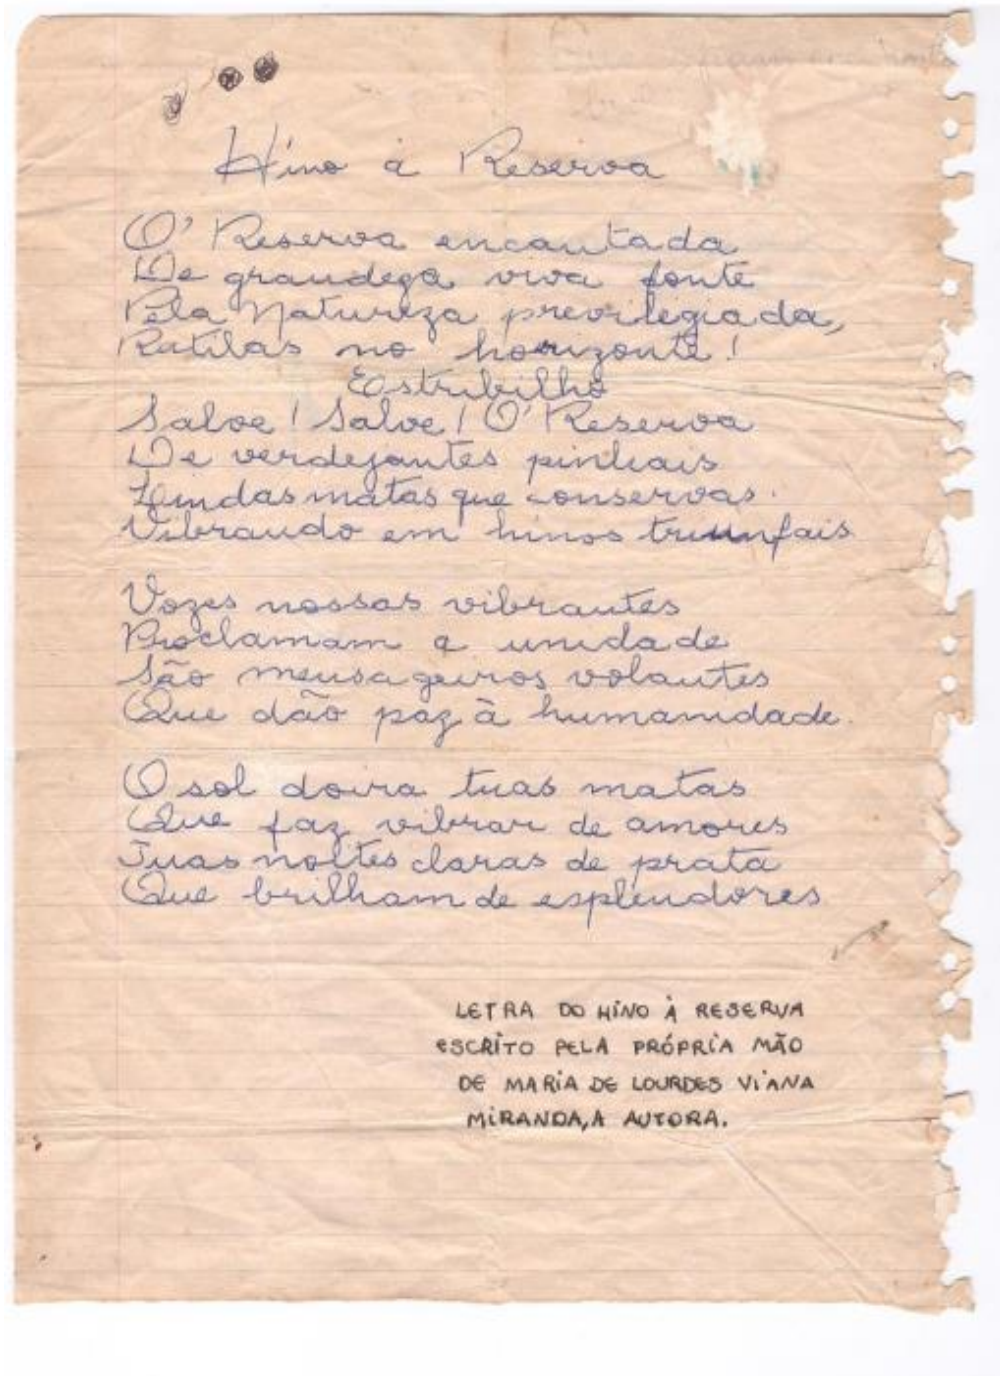 Hino à Reserva
O' Reserva encantada
De grandeza viva fonte
Pela Natureza previlegiada,
Rutilas no horizonte!
Estribilho
Salve! Salve! O' Reserva
De verdejantes pinhais
Lindas matas que conservas.
Vibrando em hinos triunfais
Vozes nossas vibrantes
Proclamam a unidade
São mensageiros volantes
Que dão paz à humanidade.
O sol doira tuas matas
Que faz vibrar de amores
Tuas noites claras de prata
Que brilham de esplendores
LETRA DO HINO À RESERVA
ESCRITO PELA PRÓPRIA MÃO
DE MARIA DE LOURDES VIANA
MIRANDA, A AUTORA.